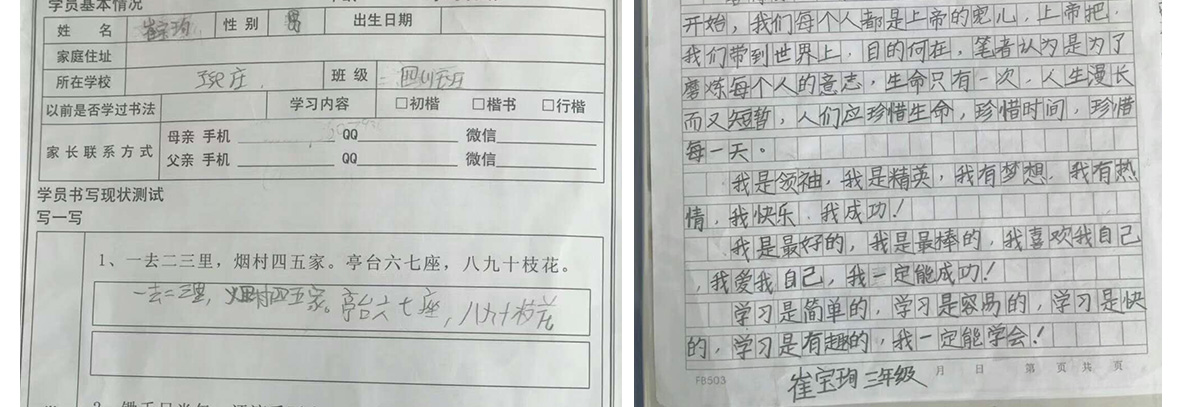 学员基本情况
姓 名 崔宝珣 性 别 男 出生日期
家庭住址
所在学校 班 级
以前是否学过书法 学习内容 □初楷 □楷书 □行楷
家长联系方式 母亲 手机 QQ 微信
父亲 手机 QQ 微信
学员书写现状测试
写一写
1、一去二三里，烟村四五家。亭台六七座，八九十枝花。
一去二三里，烟村四五家。亭台六七座，八九十枝花
开始，我们每个人都是上帝的宠儿，上帝把
我们带到世界上，目的何在，笔者认为是为了
磨炼每个人的意志，生命只有一次，人生漫长
而又短暂，人们应珍惜生命，珍惜时间，珍惜
每一天。
我是领袖，我是精英，我有梦想，我有热
情，我快乐，我成功！
我是最好的，我是最棒的，我喜欢我自己
，我爱我自己，我一定能成功！
学习是简单的，学习是容易的，学习是快
的，学习是有趣的，我一定能学会！
FB503 月 日 第 页 共 页
崔宝珣 三年级